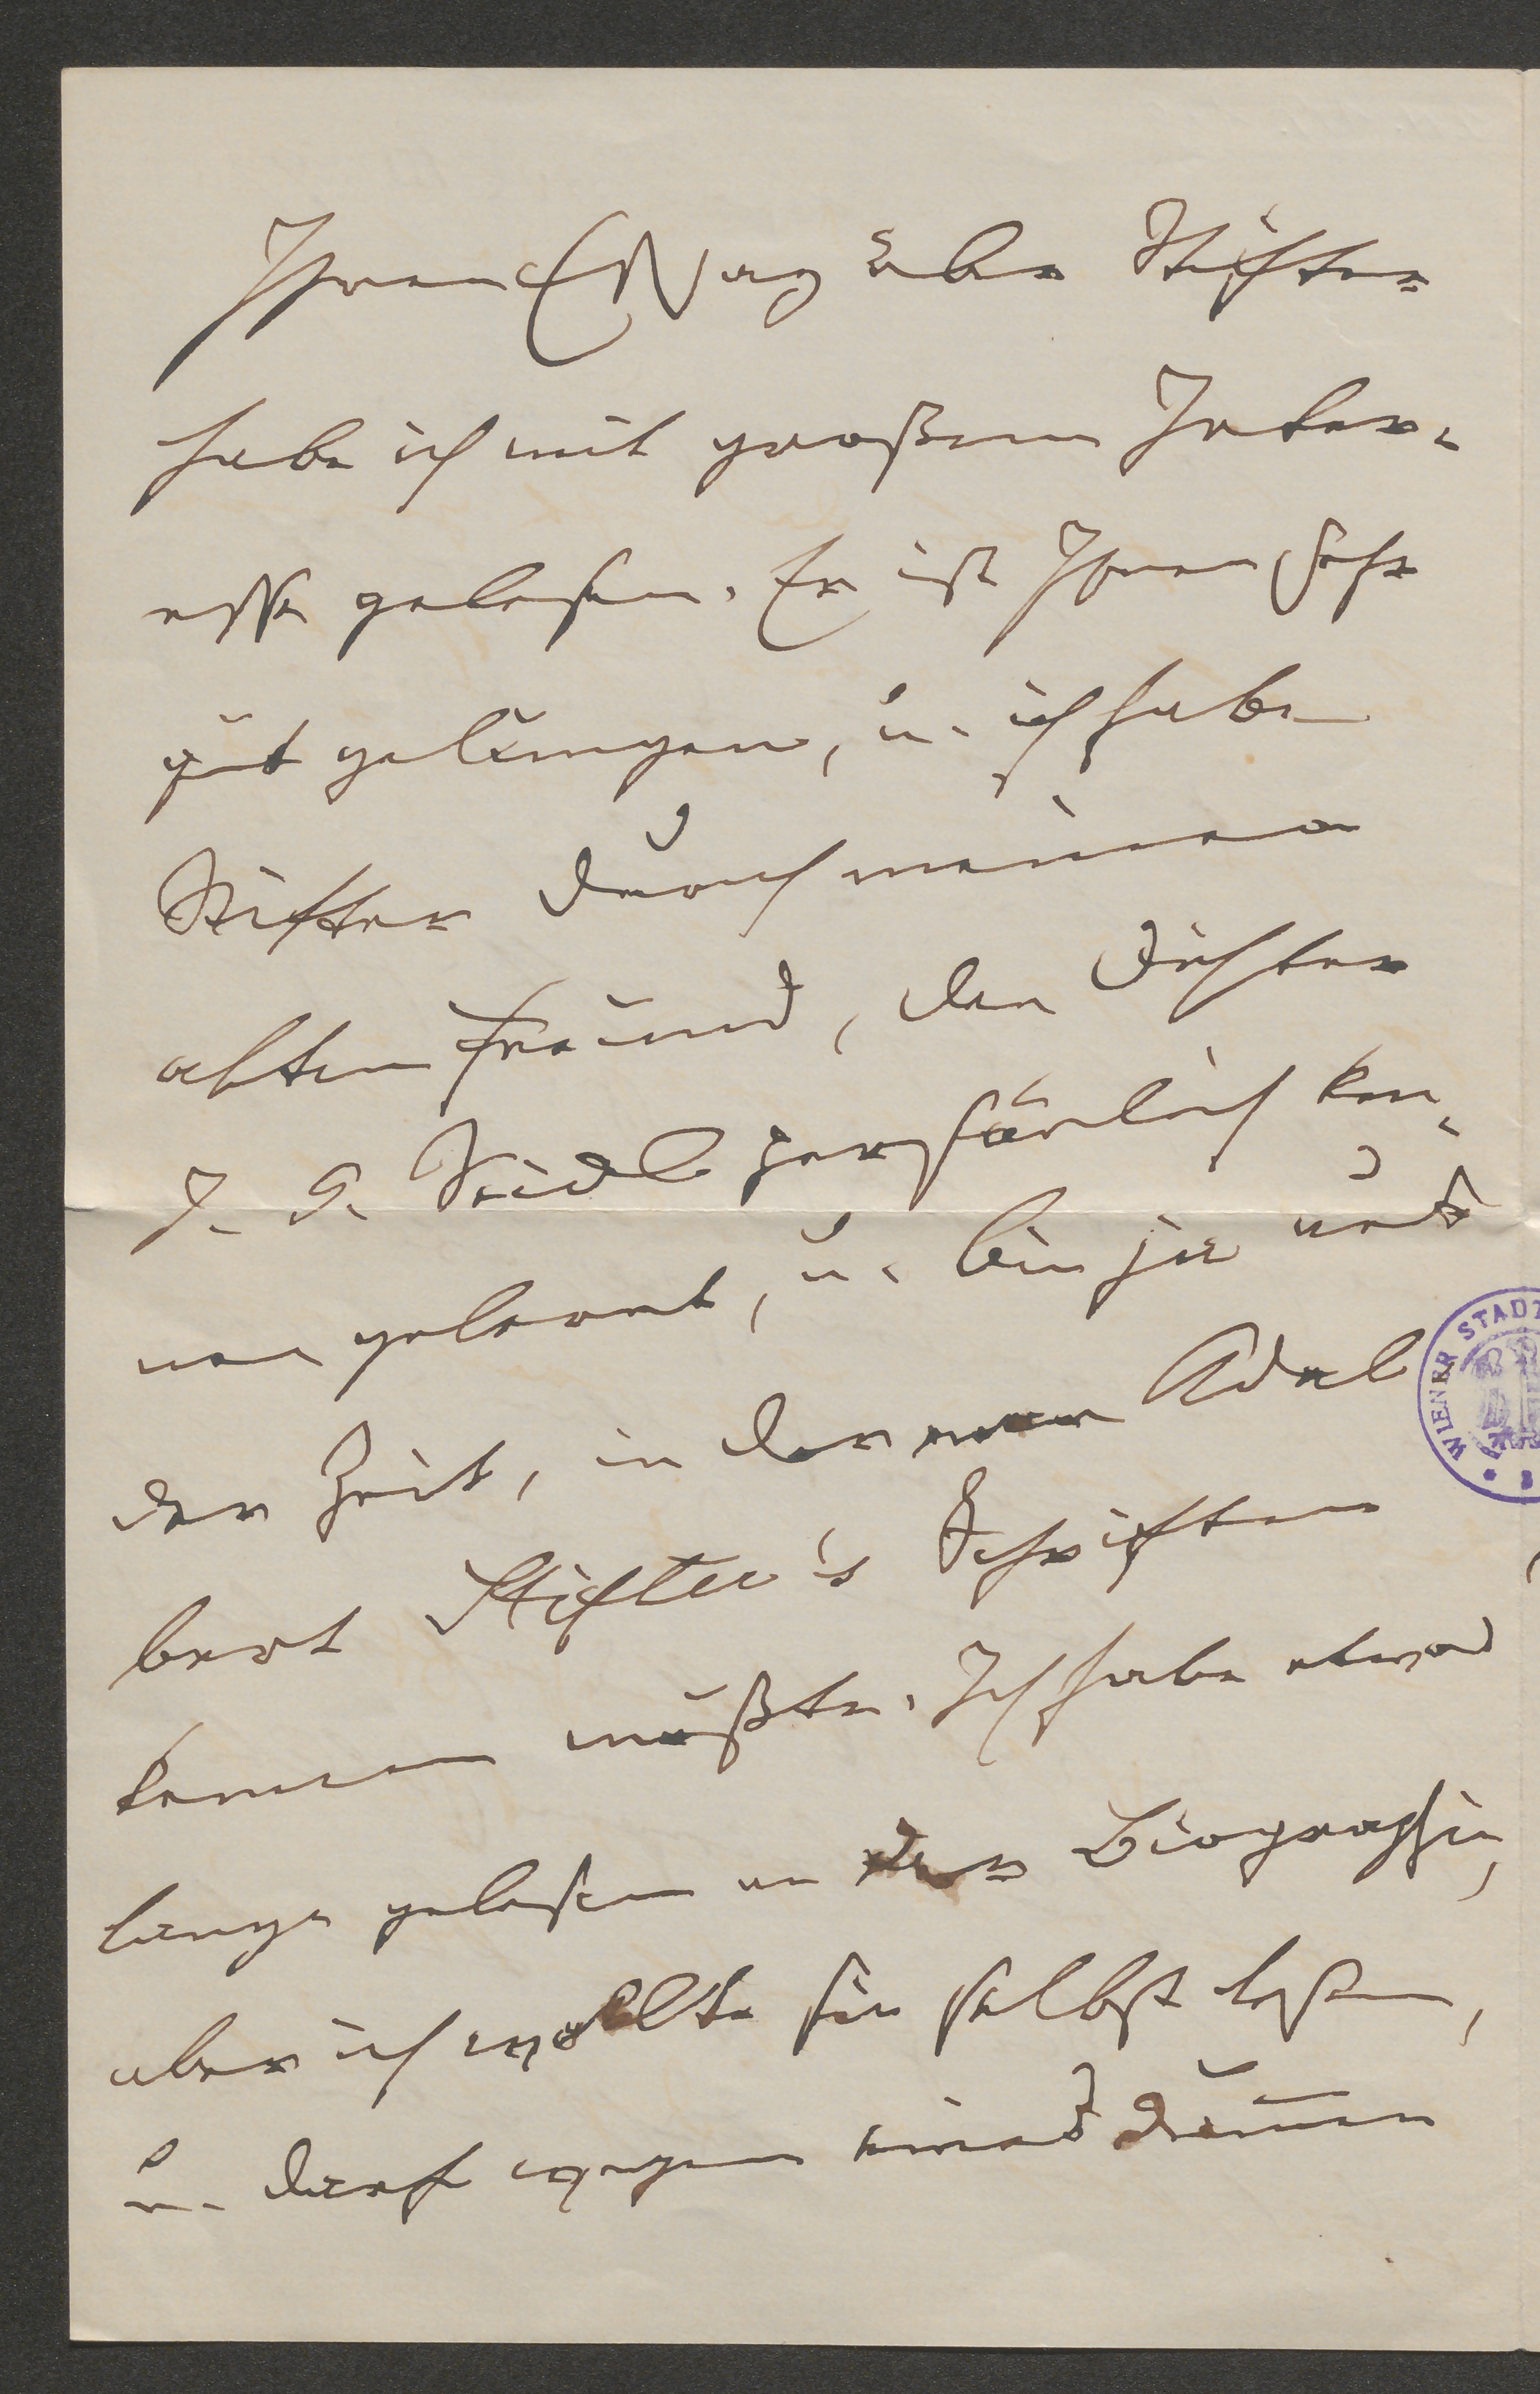 Ihren Essay über Stifter
habe ich mit großem Inter-
esse gelesen. Er ist Ihnen sehr
gut gelungen, u. ich habe
Stifter durch meinen
alten Freund, den Dichter
J. G. Seidl persönlich ken-
nen gelernt, u. bin ja aus
der Zeit, in der man Adal
bert Stifter's Schriften
kennen mußte. Ich habe etwas
lange gelesen an der Biographie,
aber ich wollte sie selbst lesen,
u. darf wegen eines
WIENER STADT